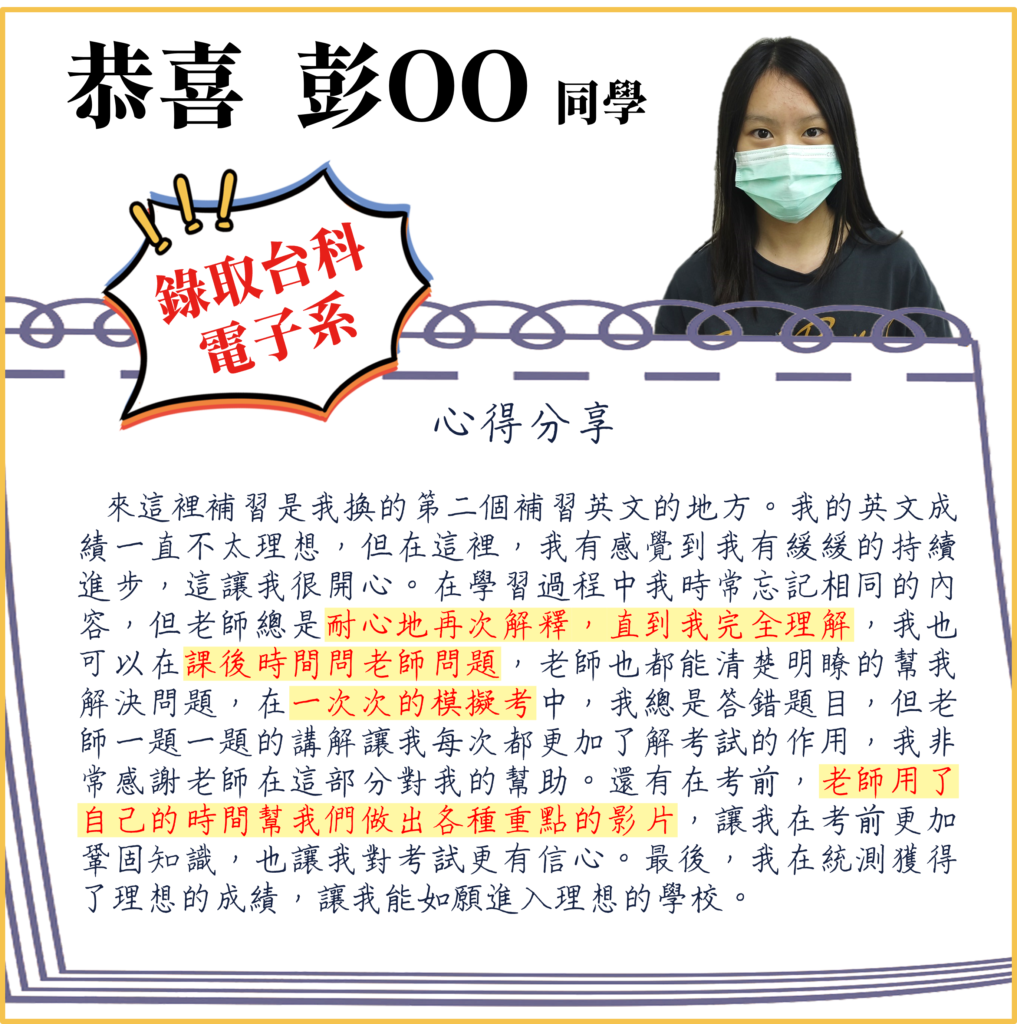 恭喜 彭OO 同學
錄取台科
電子系
心得分享
來這裡補習是我換的第二個補習英文的地方。我的英文成
績一直不太理想，但在這裡，我有感覺到我有緩緩的持續
進步，這讓我很開心。在學習過程中我時常忘記相同的內
容，但老師總是耐心地再次解釋，直到我完全理解，我也
可以在課後時間問老師問題，老師也都能清楚明瞭的幫我
解決問題，在一次次的模擬考中，我總是答錯題目，但老
師一題一題的講解讓我每次都更加了解考試的作用，我非
常感謝老師在這部分對我的幫助。還有在考前，老師用了
自己的時間幫我們做出各種重點的影片，讓我在考前更加
鞏固知識，也讓我對考試更有信心。最後，我在統測獲得
了理想的成績，讓我能如願進入理想的學校。